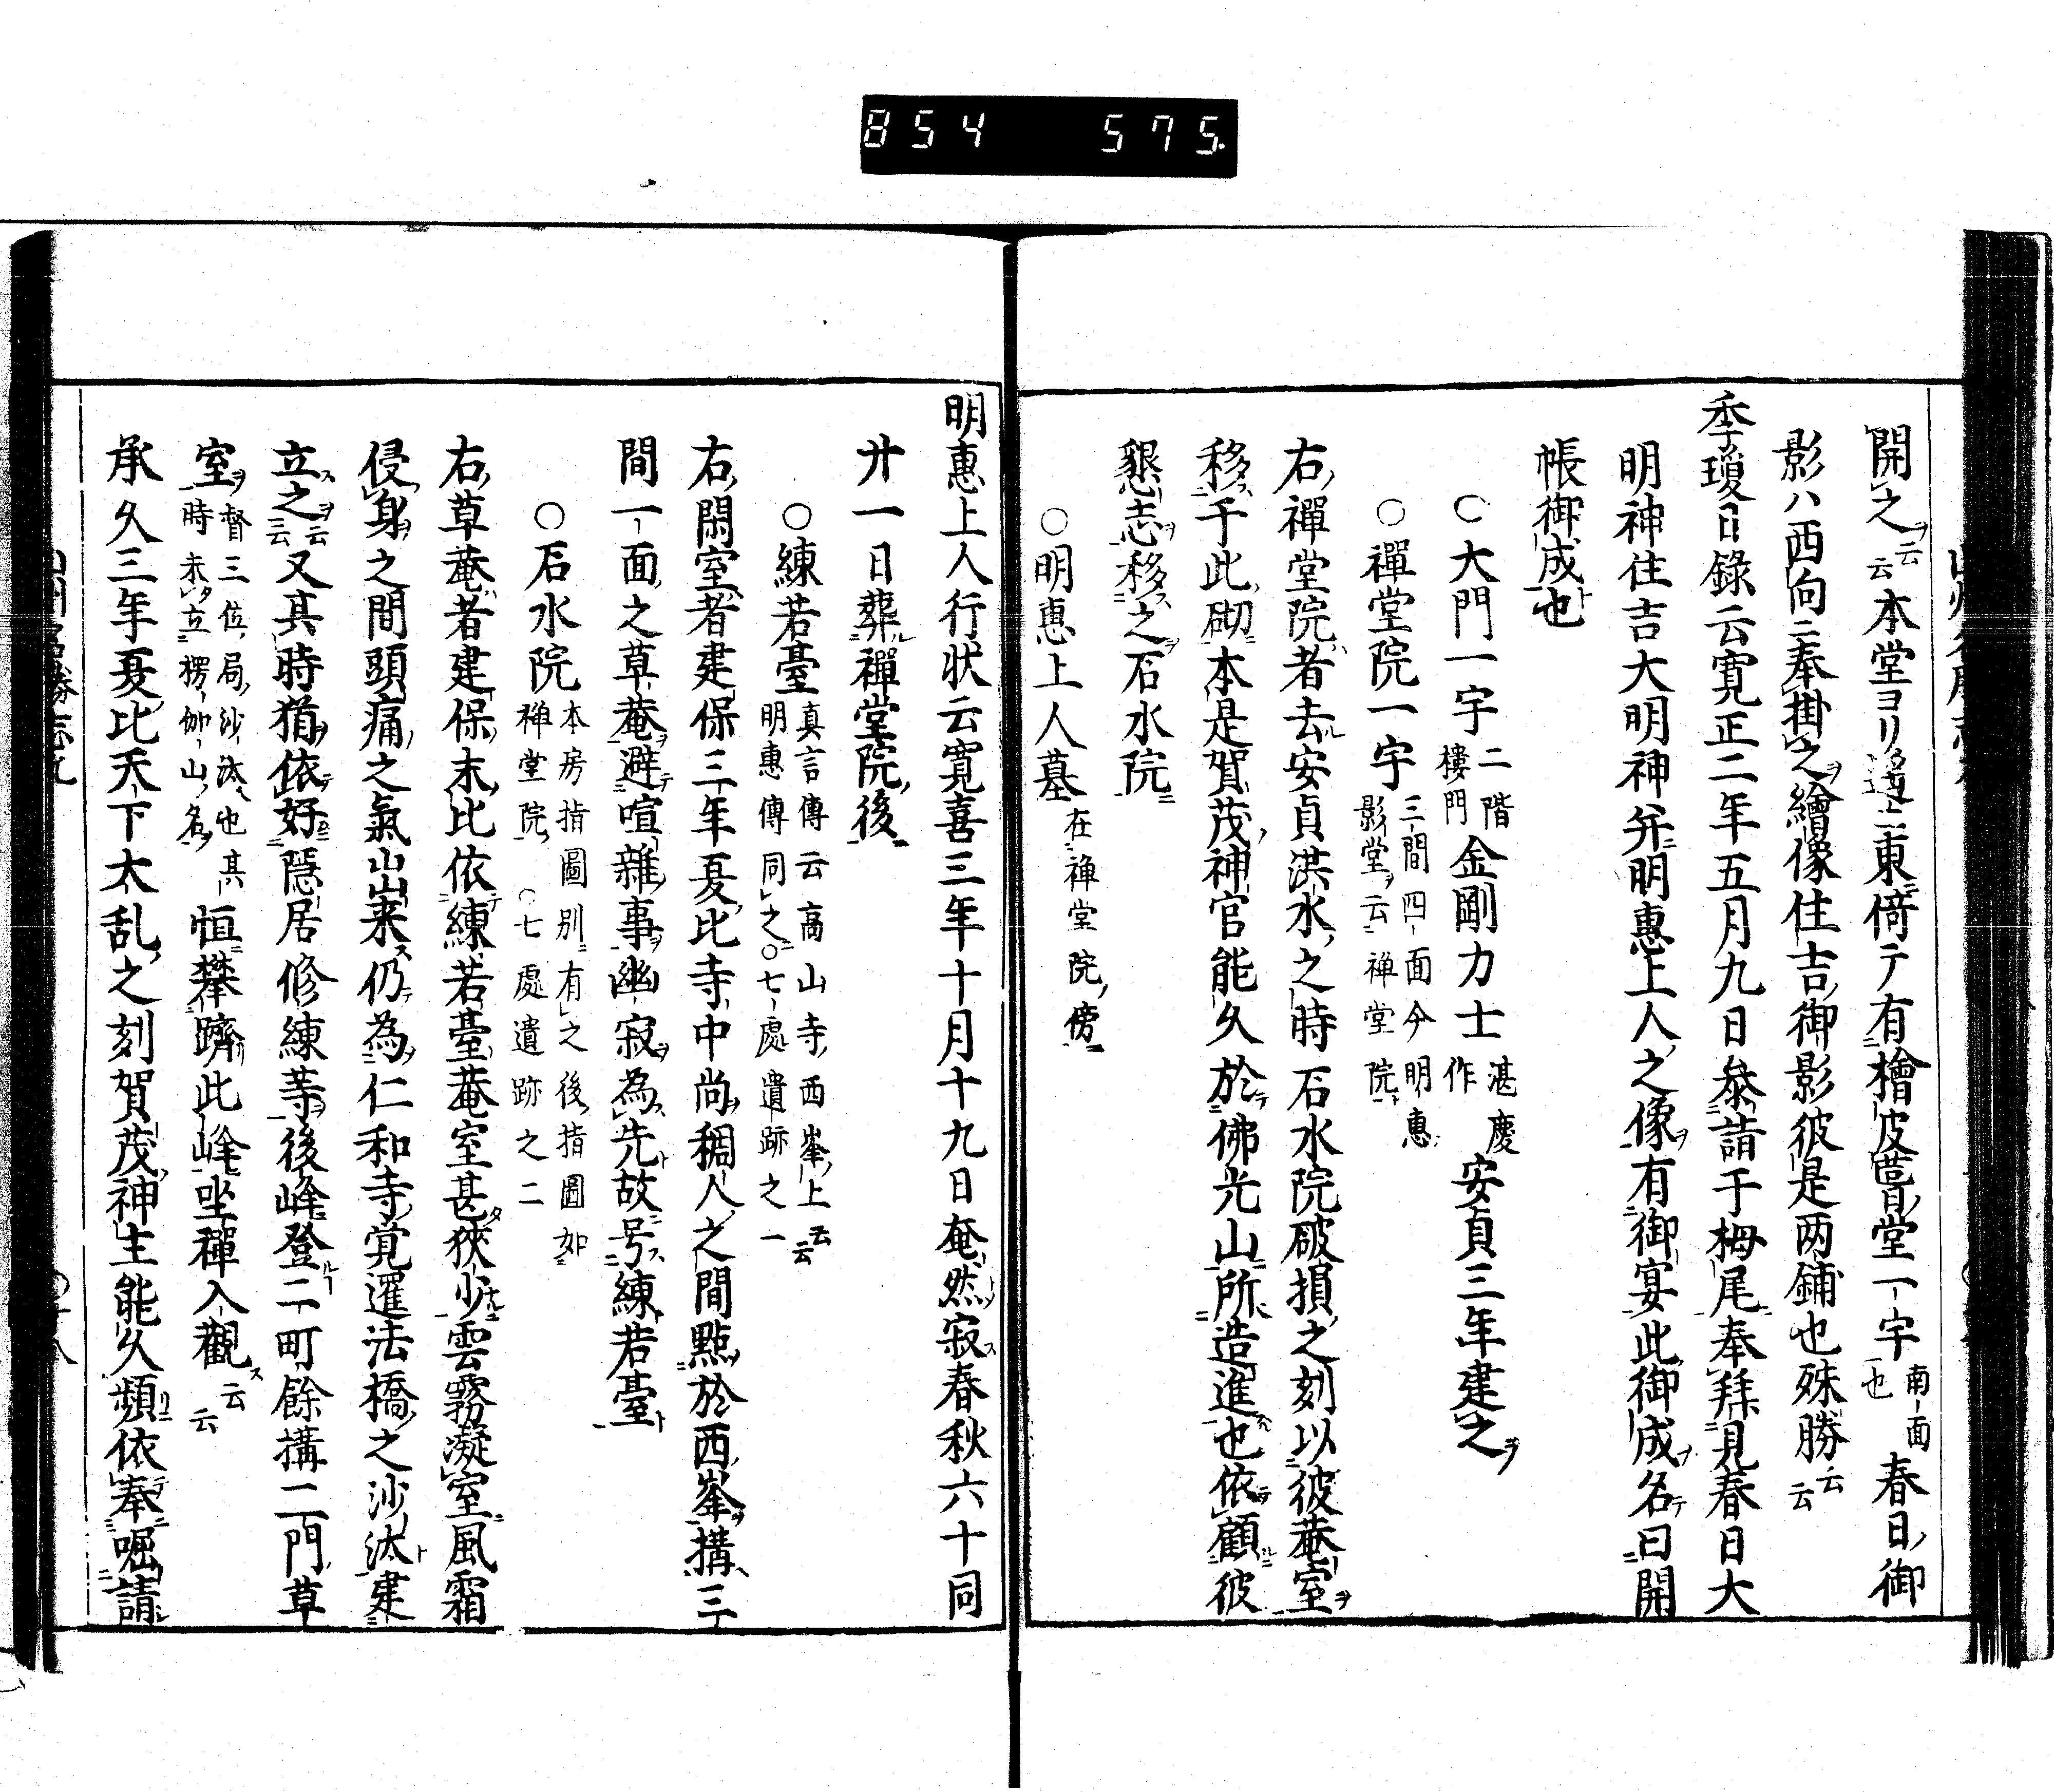 854 575.
開之云云本堂ヨリ邊ニ東倚テ有檜皮葺堂一宇南面也春日御
影ハ西向ニ奉掛之繪像住吉御影彼是两鋪也殊勝云云
季瓊日錄云寛正二年五月九日叅詣于栂尾奉拜見春日大
明神住吉大明神并明惠上人之像有御宴此御成名曰開
帳御成也
○大門一宇二階樓門金剛力士湛慶作安貞三年建之
○禪堂院一宇三間四面今明惠影堂云禅堂院
右禪堂院者去安貞洪水之時石水院破損之刻以彼菴室
移于此砌本是賀茂神官能久於佛光山所造進也依顧彼
懇志移之石水院
○明惠上人墓在禅堂院傍
明惠上人行状云寛喜三年十月十九日奄然寂春秋六十同
廾一日葬禪堂院後
○練若臺真言傳云高山寺西峯上云云明惠傳同之○七處遺跡之一
右閑室者建保三年夏比寺中尚稠人之間點於西峯搆三
間一面之草菴避喧雜事幽寂為先故号練若臺
○石水院本房指圖別有之後指圖如禅堂院○七處遺跡之二
右草菴者建保末比依練若臺菴室甚狹少雲霧凝室風霜
侵身之間頭痛之氣出来仍為仁和寺覚暹法橋之沙汰建
立之云云又其時猶依好隱居修練等後峰登二町餘搆二間草
室督三位局沙汰也其時未立楞伽山名恒攀躋此峰坐禪入觀云云
承久三年夏比天下大乱之刻賀茂神主能久頻依奉啒請